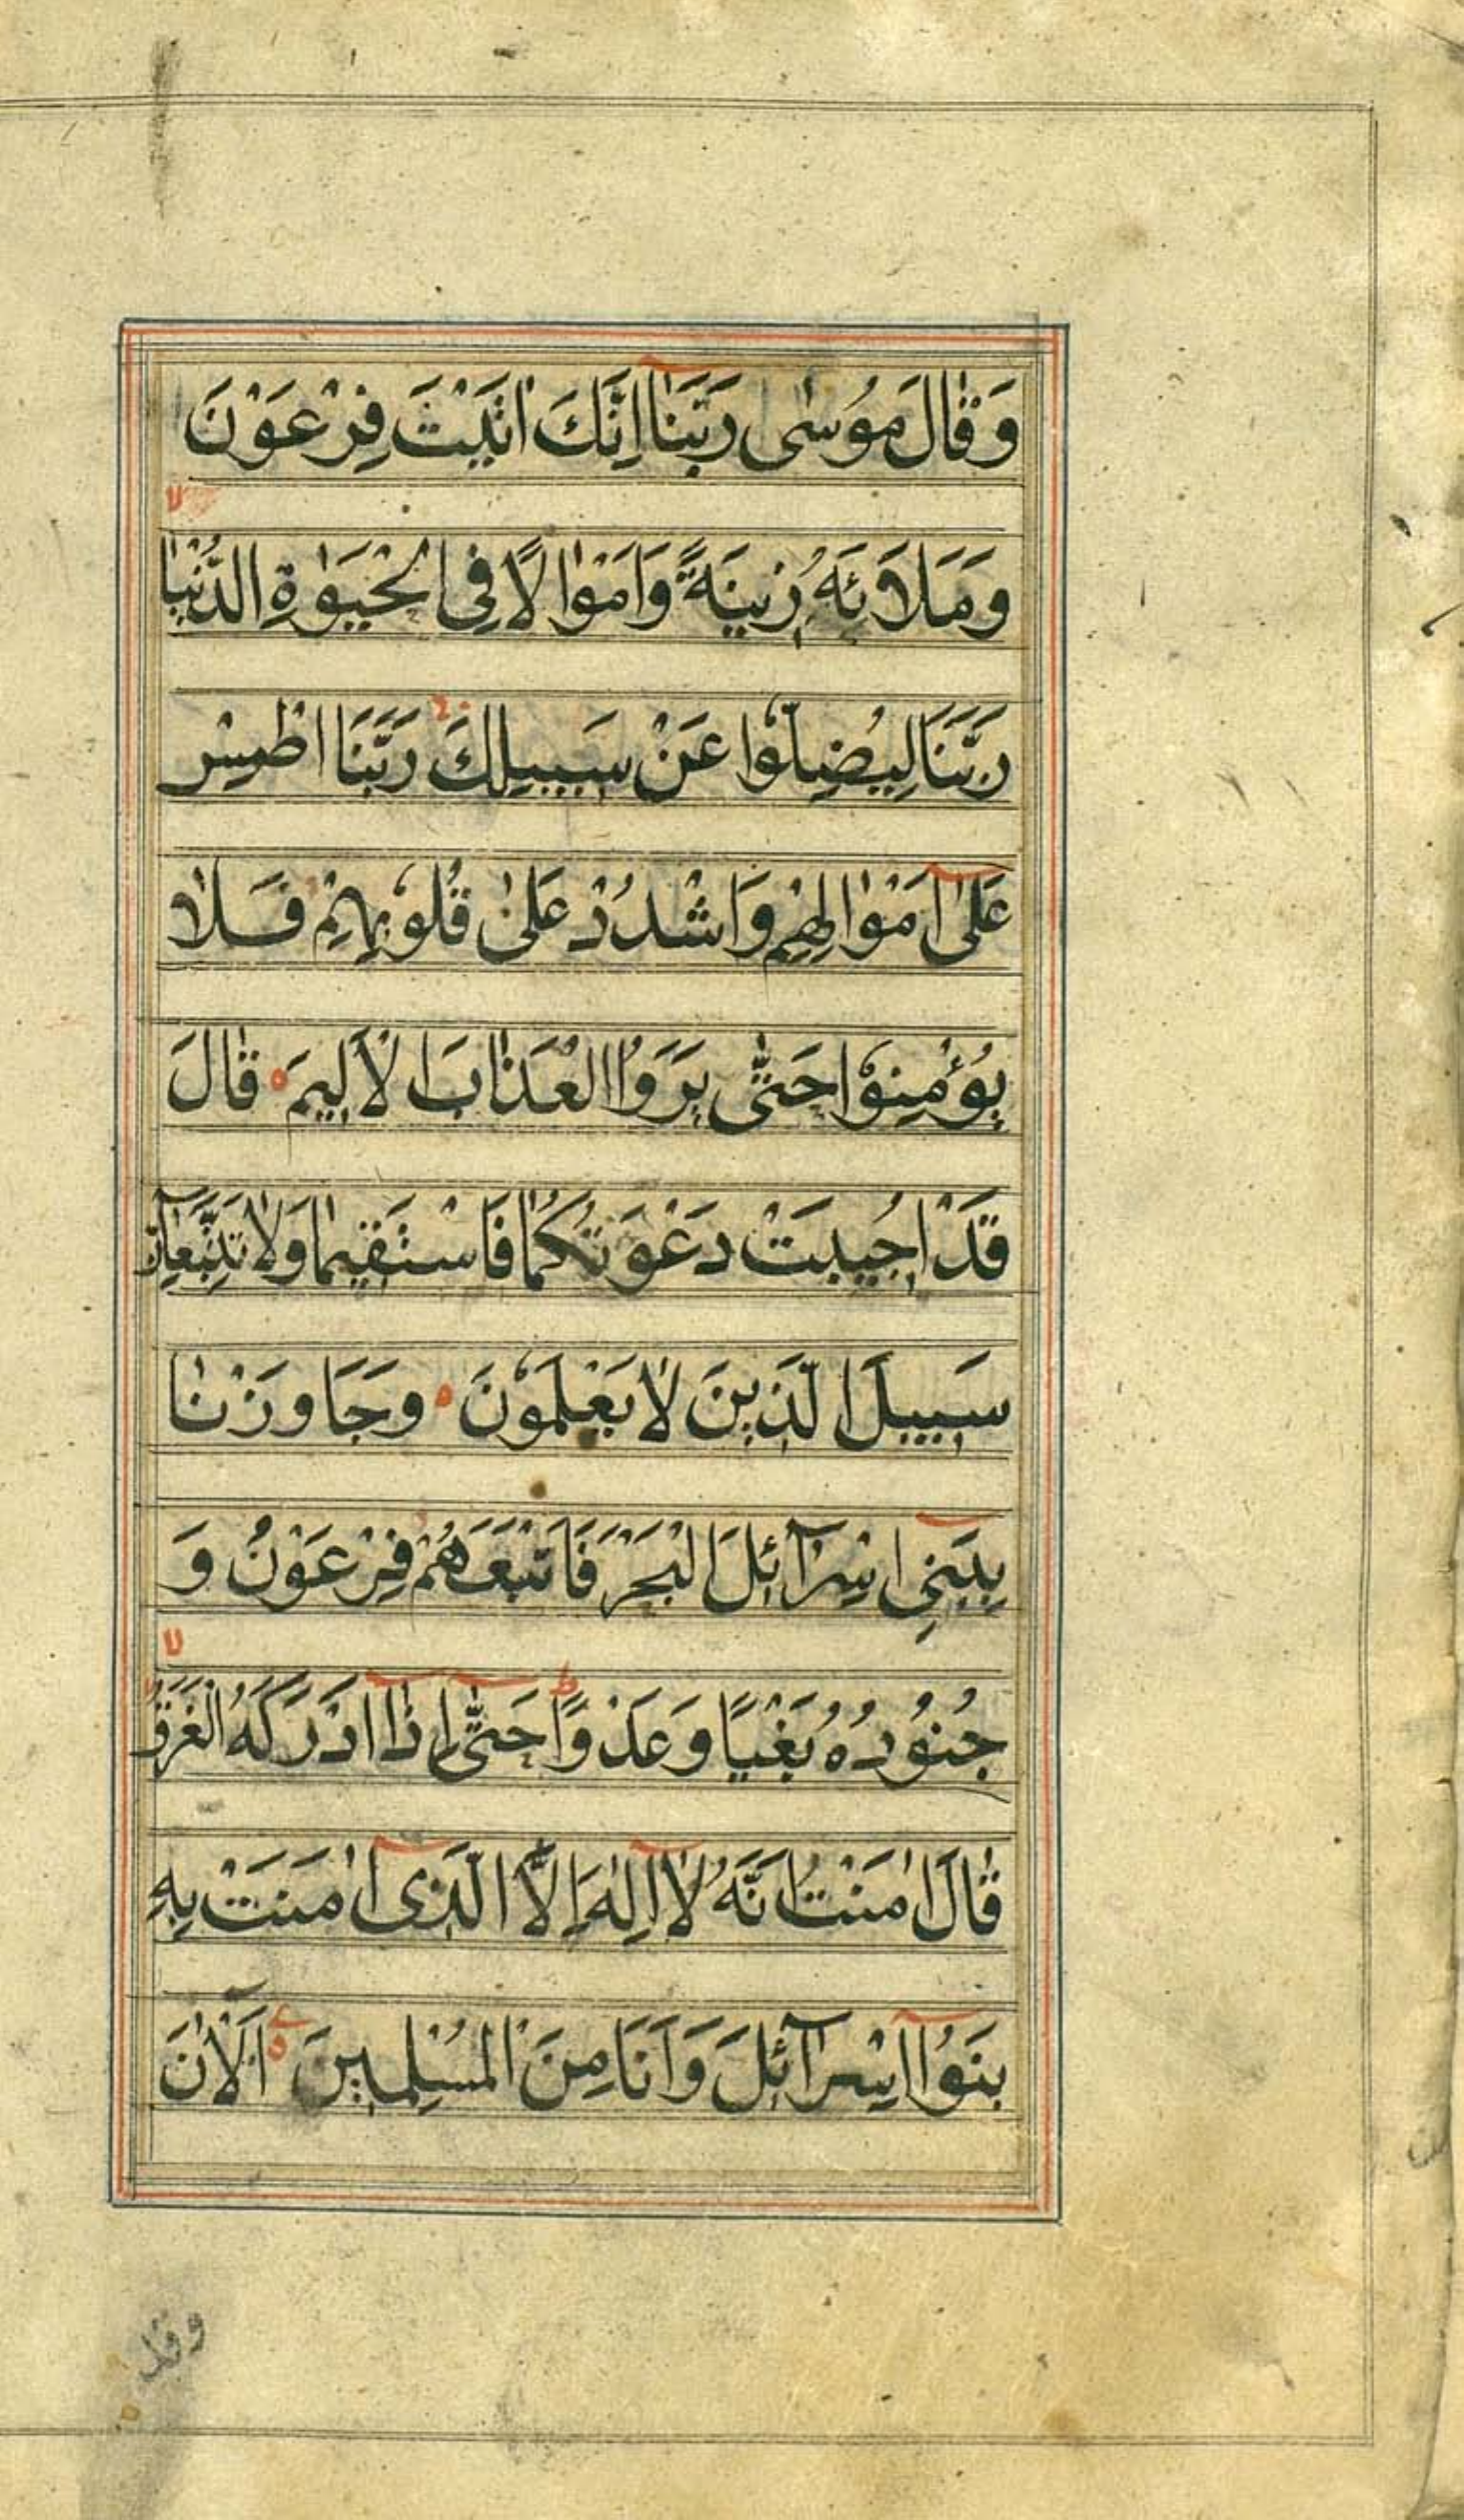 وَقَالَ مُوسٰى رَبَّنَآ اِنَّكَ اٰتَيْتَ فِرْعَوْنَ
وَمَلَاَئَهُ زِيْنَةً وَاَمْوَالًا فِى الْحَيٰوةِ الدُّنْيَا
رَبَّنَا لِيُضِلُّوا عَنْ سَبِيلِكَ رَبَّنَا اطْمِسْ
عَلٰٓى اَمْوَالِهِمْ وَاشْدُدْ عَلٰى قُلُوبِهِمْ فَلَا
يُؤْمِنُوا حَتّٰى يَرَوُا الْعَذَابَ الْاَلِيمَ قَالَ
قَدْ اُجِيبَتْ دَعْوَتُكُمَا فَاسْتَقِيمَا وَلَا تَتَّبِعَآنِّ
سَبِيلَ الَّذِينَ لَا يَعْلَمُونَ وَجَاوَزْنَا
بِبَنِىٓ اِسْرَآئِلَ الْبَحْرَ فَاَتْبَعَهُمْ فِرْعَوْنُ وَ
جُنُودُهُ بَغْيًا وَعَدْوًا حَتّٰٓى اِذَآ اَدْرَكَهُ الْغَرَقُ
قَالَ اٰمَنْتُ اَنَّهُ لَآ اِلٰهَ اِلَّا الَّذِىٓ اٰمَنَتْ بِهِ
بَنُوٓا اِسْرَآئِلَ وَاَنَا مِنَ الْمُسْلِمِينَ آلْاٰنَ
وقد